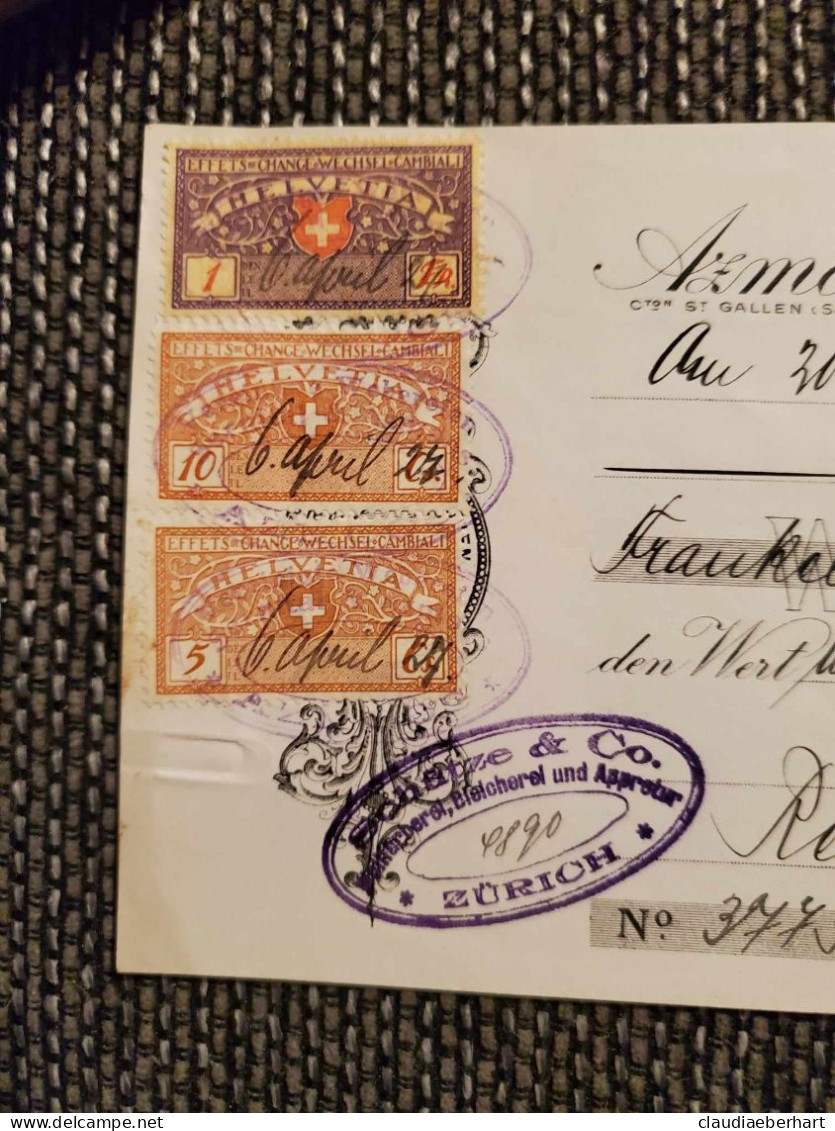 EFFETS=CHANGE·WECHSEL·CAMBIALI
HELVETIA
1
6. april 27.
EFFETS=CHANGE·WECHSEL·CAMBIALI
HELVETIA
10
6. april 27.
EFFETS=CHANGE·WECHSEL·CAMBIALI
HELVETIA
5
6. april 27.
Azmo
CTON ST GALLEN (S
Am 20
Franke
den Wert
Schetze & Co.
Bleicherei und Appretur
4890
* ZÜRICH *
Re
No 377
claudiaeberhart